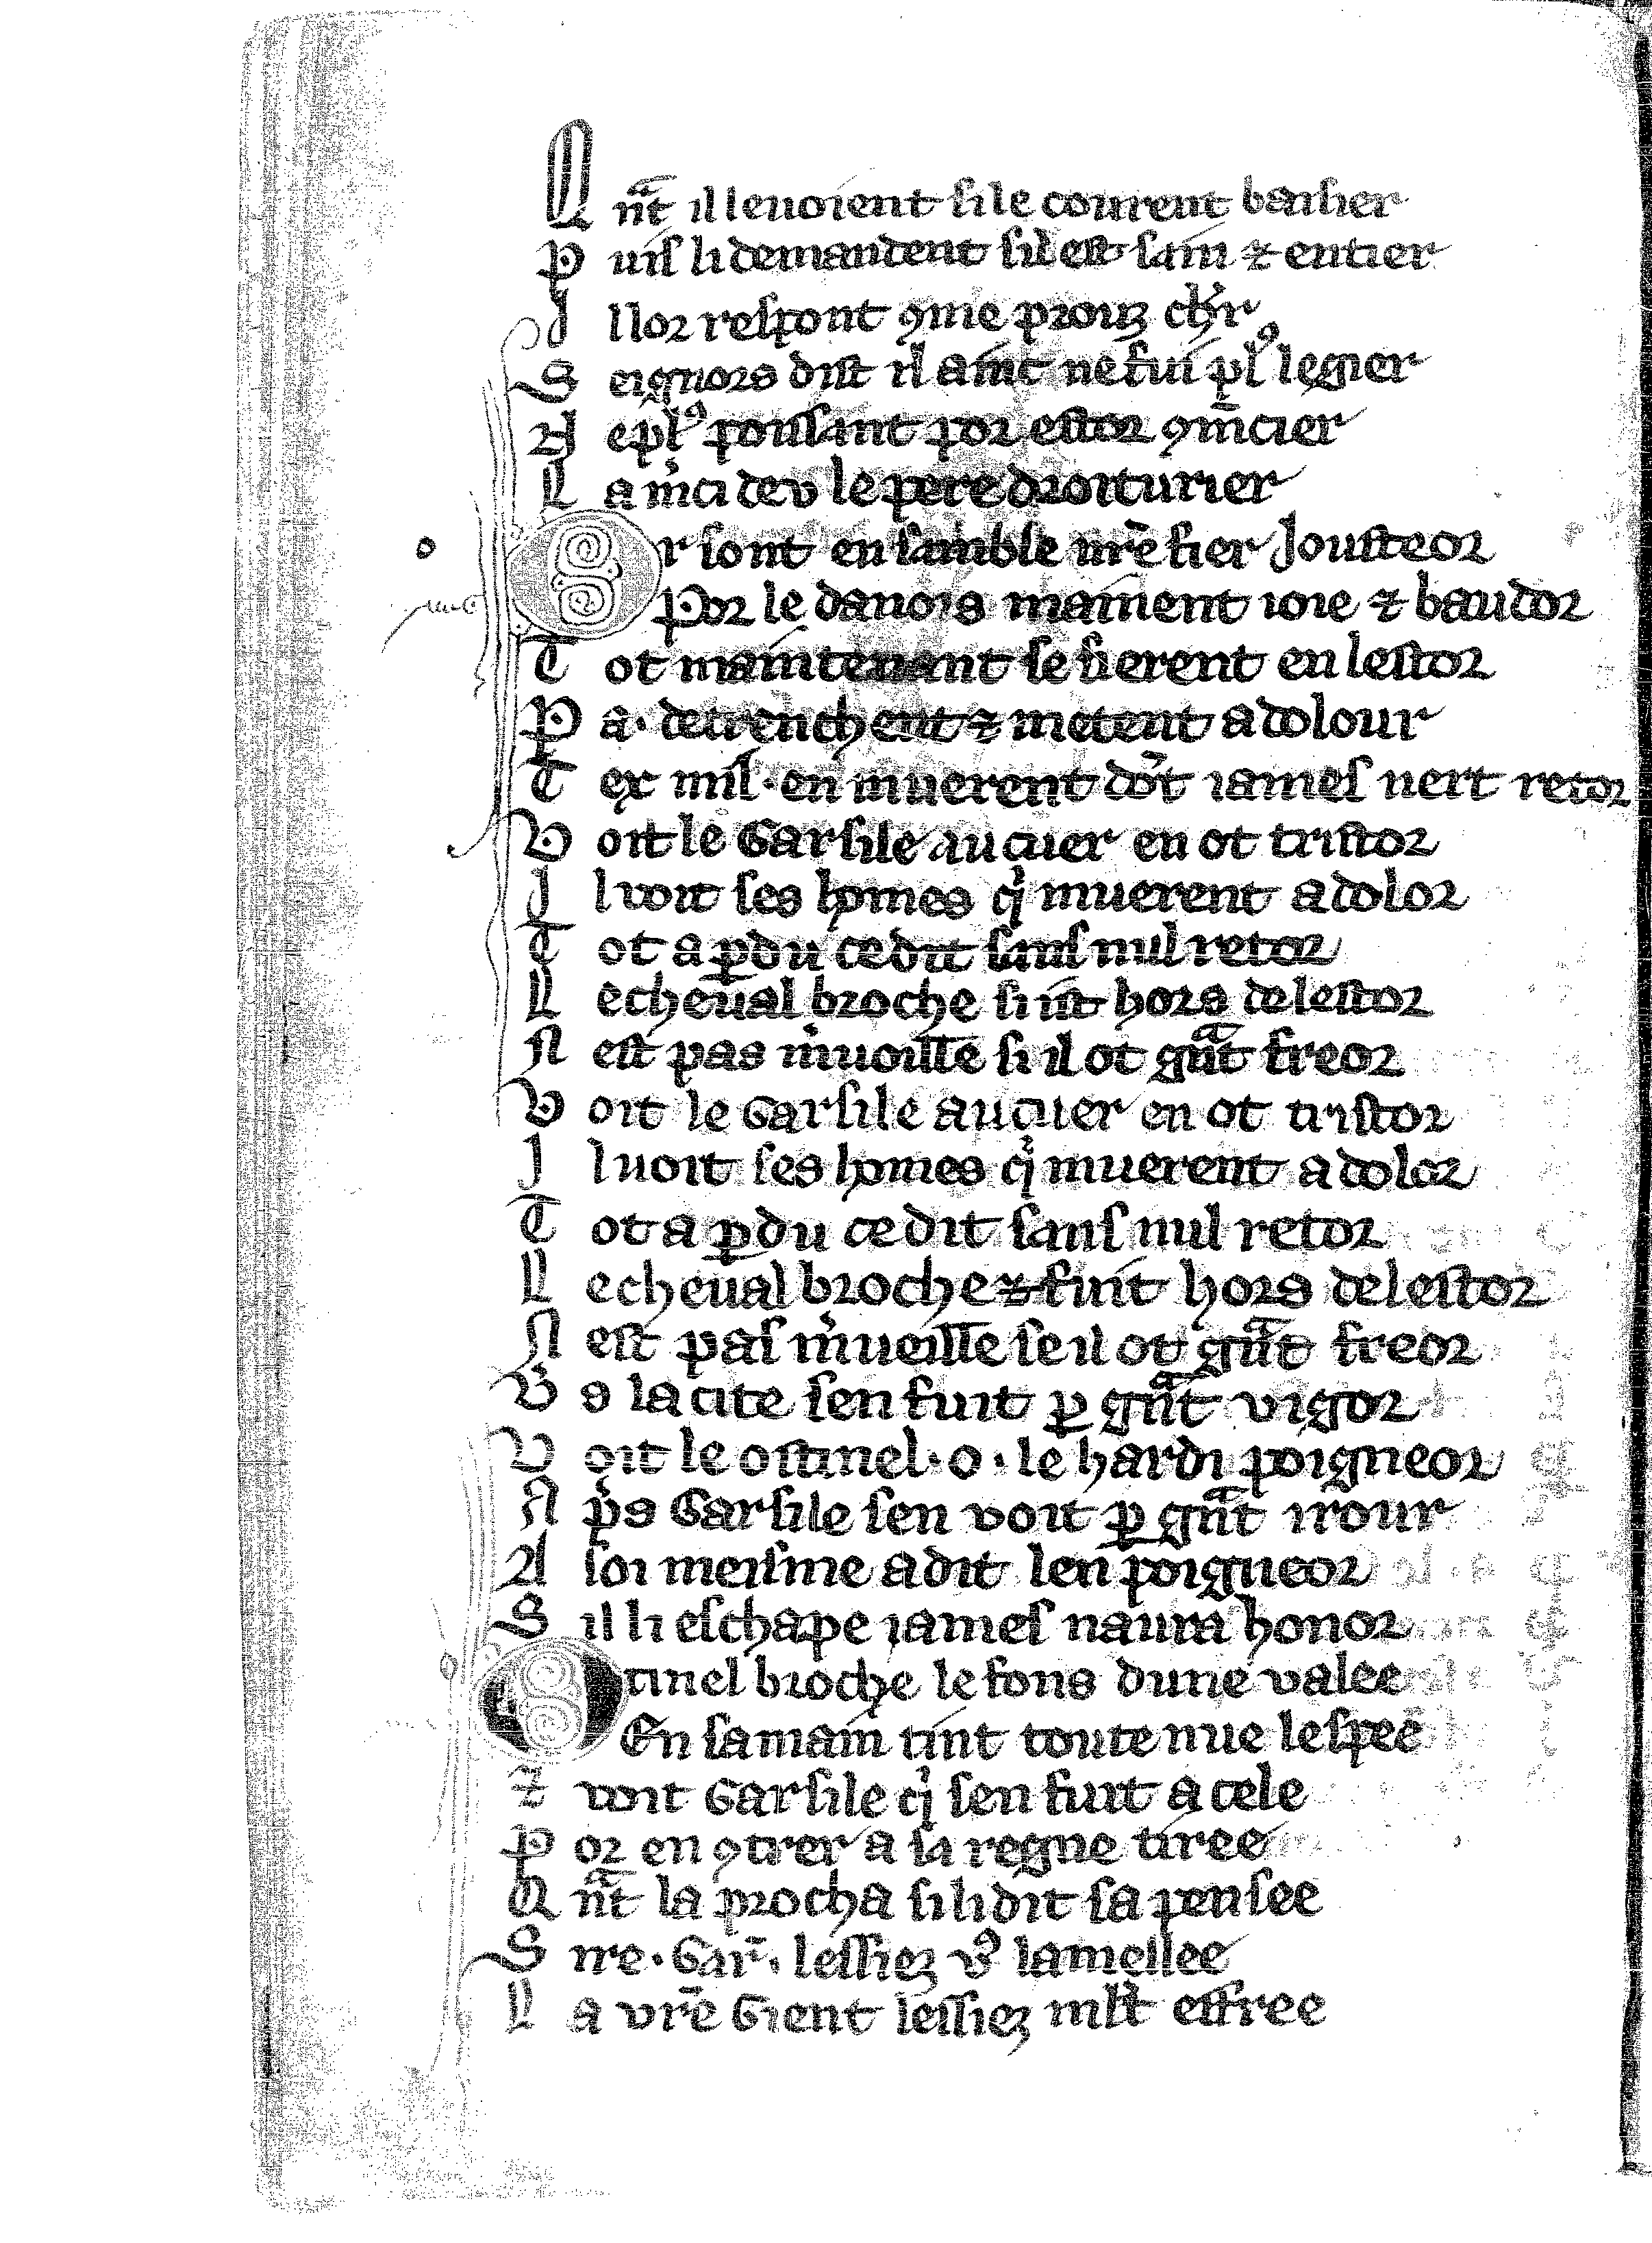 Qnᷓt il leuoient si le courent baisier
Puis li demandent sil est sain ⁊ entier
Il lor respont ꝯme prouz chꝛ̉
Seignors dist il ainc ne fui plꝰ legier
Ne plꝰ poussant por estor ꝯmēcier
La m̉ci deu le pere droiturier
Or sont ensamble nr̄e fier Jousteor
Por le danois mainent ioie ⁊ baudor
Tot maintenant se fierent en lestor
Pa· detrenchent ⁊ metent a dolour
Tex mil· en muerent dōt iames niert retor
Voit le Garsile au cuer en ot tristor
Il voit ses homes qͥ muerent a dolor
Tot a ꝑdu ce dit sans nul retor
Le cheual broche si ist hors de lestor
Nest pas m̉uoille si il ot gᷓnt freor
Voit le Garsile au cuer en ot tristor
Il uoit ses homes qͥ muerent a dolor
Tot a ꝑdu ce dit sans nul retor
Le cheual broche ⁊ fuit hors de lestor
Nest pas m̉ueille se il ot gᷓnt freor
V̉s la cite sen fuit ꝑ gᷓnt vigor
Voit le ostinel· o· le hardi poigneor
Ap̉s Garsile sen voit ꝑ gᷓnt irour
A soi meisme a dit len poigneor
Sil li eschape iames naura honor
Otinel broche le fons dune valee
En sa main tint toute nue lespee
⁊ voit Garsile qͥ sen fuit a cele
Por enꝯtrer a sa regne tiree
Qnᷓt la procha si li dit sa pensee
Sire· Gar̄· lessiez v̉ la mellee
La vr̄e Gient lessiez ml̄t esfree